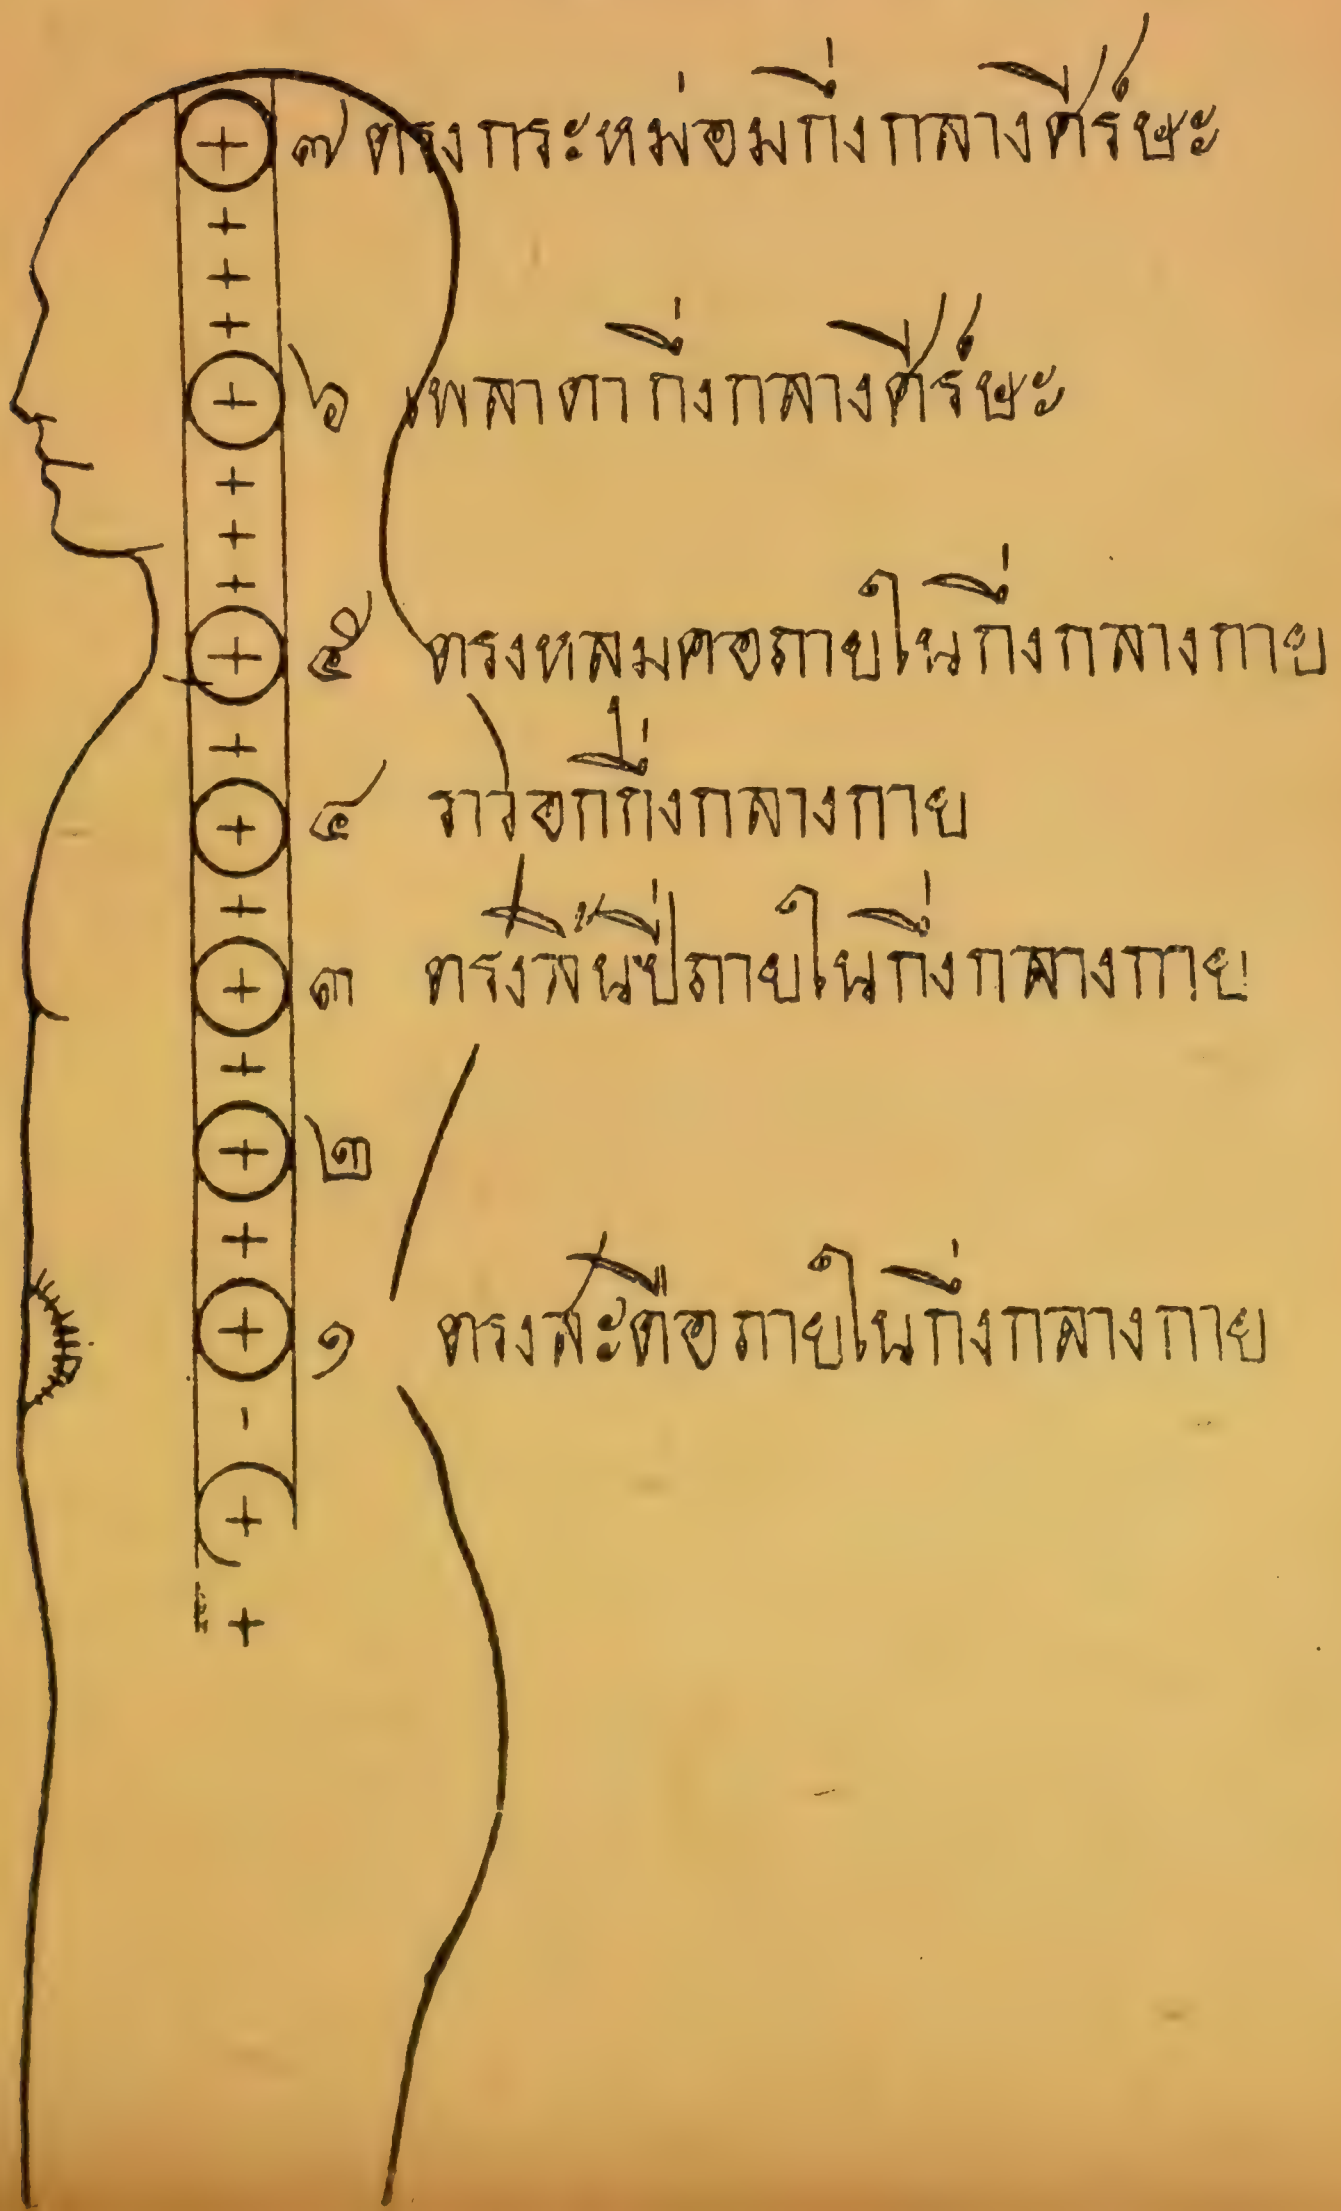 ๗ ตรงกระหม่อมกึ่งกลางศีร์ษะ
๖ เพลาตากึ่งกลางศีร์ษะ
๕ ตรงหลุมคอภายในกึ่งกลางกาย
๔ ราวอกกึ่งกลางกาย
๓ ตรงลิ้นปี่ภายในกึ่งกลางกาย
๒
๑ ตรงสะดือภายในกึ่งกลางกาย